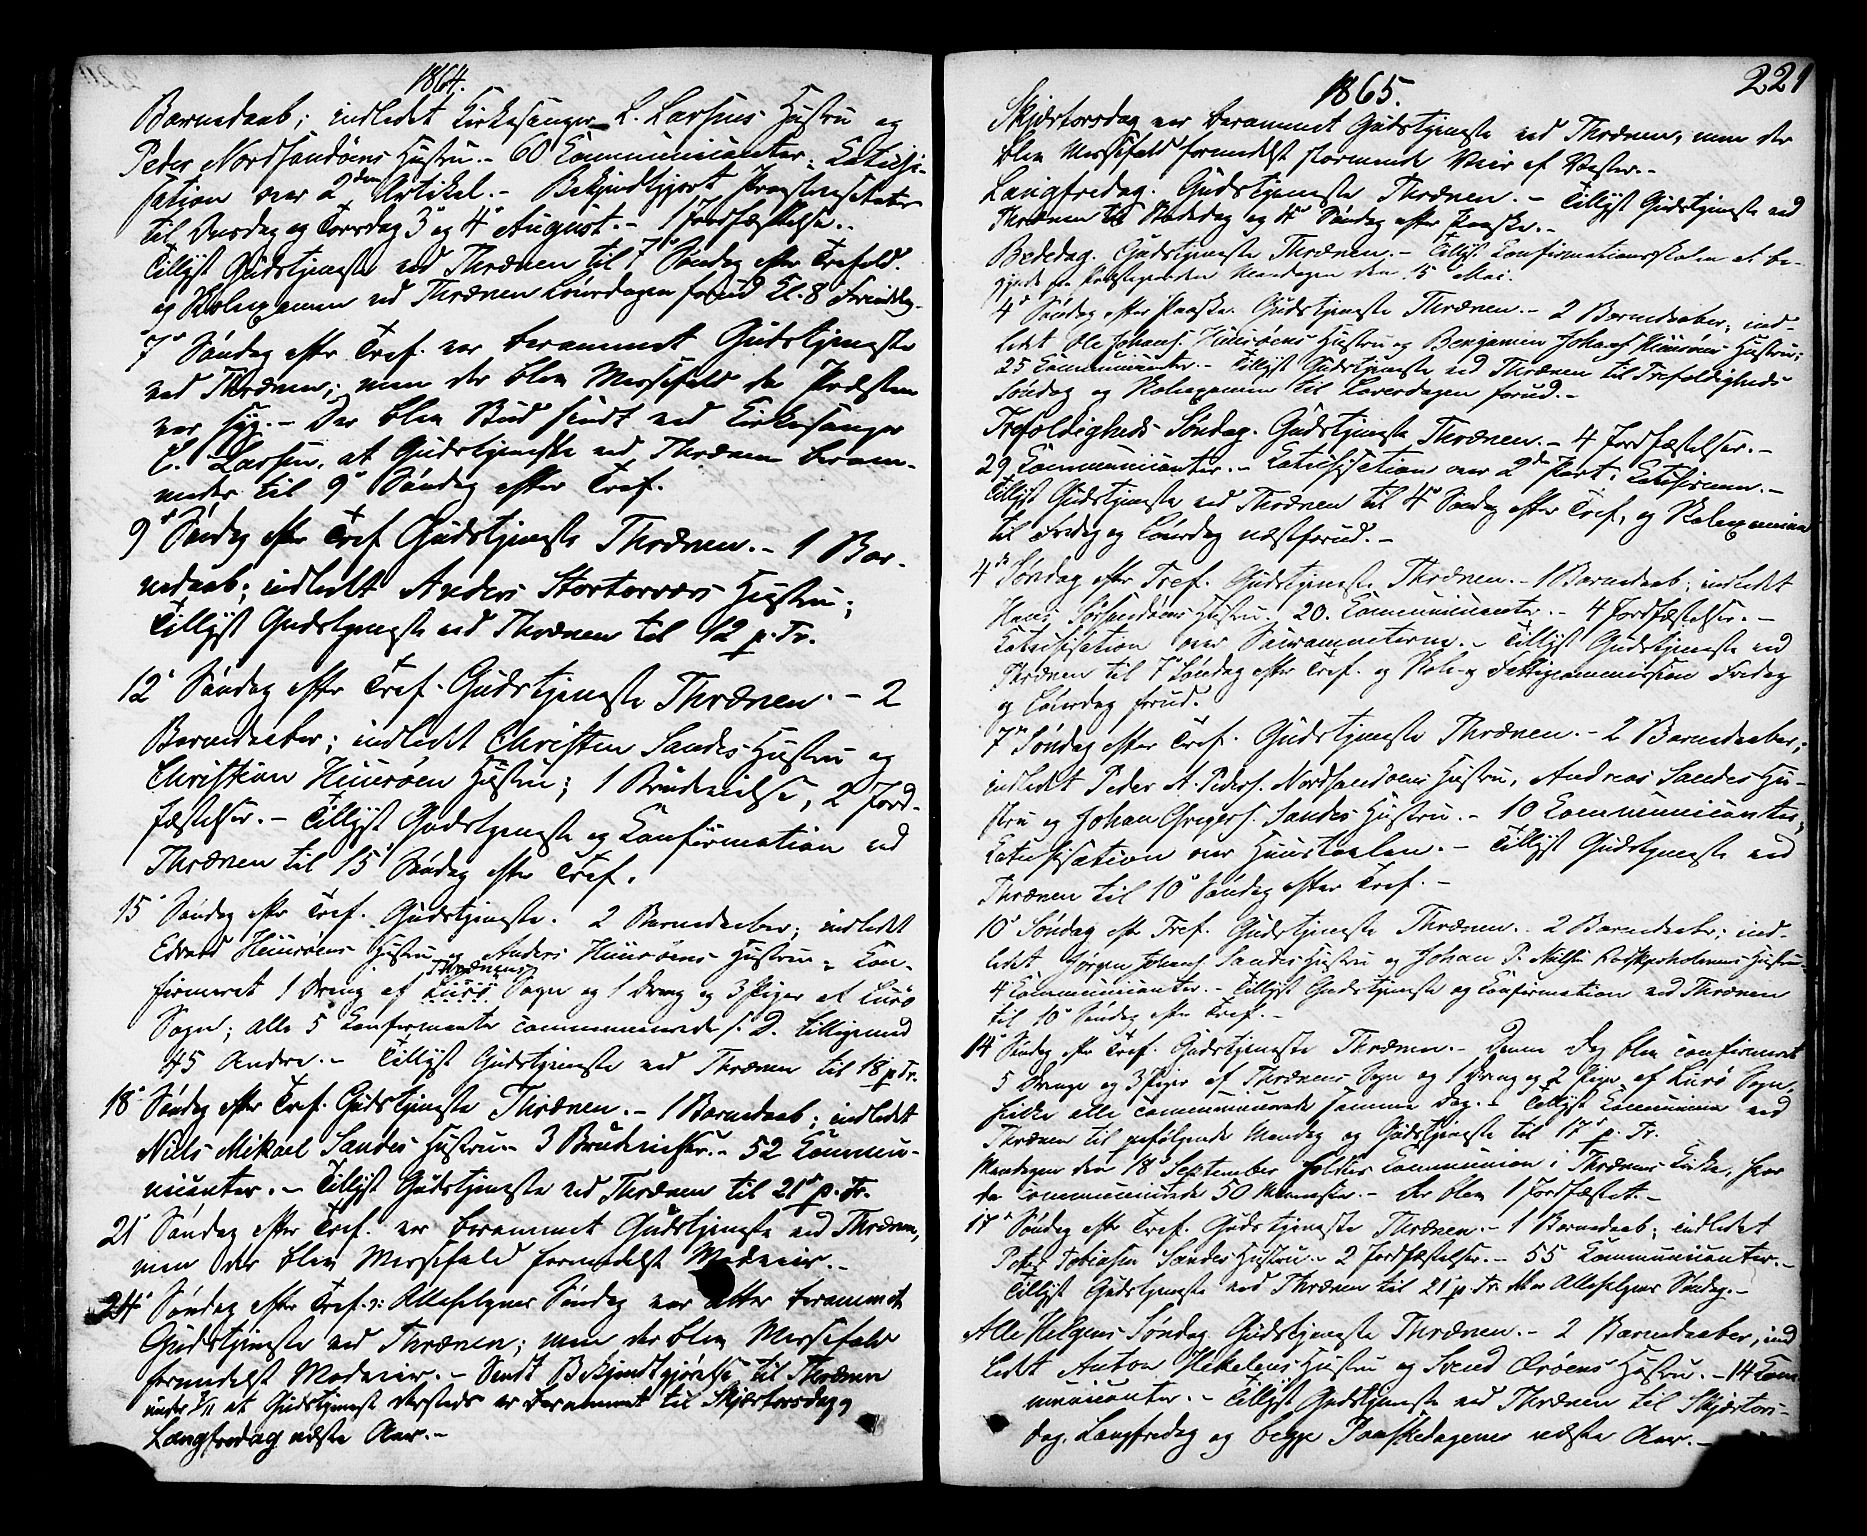 1864.
Barnedaab; indledet Kirkesanger L. Larsens Hustru og
Peder Nordsandøens Hustru. - 60 Communicanter. Katechi-
sation over 2den Artikel. - Bekjendtgjort
til Onsdag og Torsdag 3' og 4' August. - 1 Jordfæstelse. -
Tillyst Gudstjeneste ved Thrænen til 7' Søndag efter Trefold.
og Skolexamen ved Thrænen Løverdagen forud Kl. 8 Formiddag.
7' Søndag efter Tref. var berammet Gudstjeneste
ved Thrænen; men der blev Messefald da Præsten
var syg. - Der blev Bud sendt ved Kirkesanger
L. Larsen, at Gudstjeneste ved Thrænen beram-
medes til 9' Søndag efter Tref.
9' Søndag efter Tref Gudstjeneste Thrænen. - 1 Bar-
nedaab; indledt Anders Stortorværs Hustru;
Tillyst Gudstjeneste ved Thrænen til 12 p. Tr.
12' Søndag efter Tref. Gudstjeneste Thrænen. - 2
Barnedaaber; indledet Christen Sandes Hustru og
Christian Huusøen Hustru; 1 Brudevielse, 2 Jord-
fæstelser. - Tillyst Gudstjeneste og Konfirmation ved
Thrænen til 15' Søndag efter Tref.
15' Søndag efter Tref. Gudstjeneste. 2 Barnedaaber; indledet
Edvard Huusøens Hustru og Anders Huusøens Hustru. Kon-
Thrænens
firmeret 1 Dreng af Lurø Sogn og 1 Dreng og 3 Piger af Lurø
Sogn; alle 5 Konfirmanter communicerede s. D. tilligemed
45 Andre. - Tillyst Gudstjeneste ved Thrænen til 18' p Tr.
18' Søndag efter Tref. Gudstjeneste Thrænen. - 1 Barnedaab; indledet
Niels Mikael Sandes Hustru - 3 Brudevielser. - 52 Commu-
nicanter. - Tillyst Gudstjeneste ved Thrænen til 21' p. Tr.
21' Søndag efter Tref. var berammet Gudstjeneste ved Thrænen,
men der blev Messefald formedelst Modveir. -
24' Søndag efter Tref. ɔ: Allehelgens Søndag var atter berammet
Gudstjeneste ved Thrænen; men der blev Messefald
formedelst Modveir. - Sendt Bekjendtgjørelse til Thrænen
under at Gudstjeneste dersteds er berammet til Skjærtorsdag,
Langfredag næste Aar. -
1865.
221
Skjærtorsdag var berammet Gudstjeneste ved Thrænen, men der
blev Messefald formedelst stormende Veir af Vester. -
Langfredag. Gudstjeneste Thrænen. - Tillyst Gudstjeneste ved
Thrænen til Bededag og 4' Søndag efter Paaske. -
Bededag. Gudstjeneste Thrænen. - Tillyst Confirmationsskolen at be-
gynde paa Præstegaarden Mandagen den 15 Mai.
4' Søndag efter Paaske. Gudstjeneste Thrænen. - 2 Barnedaaber; ind-
ledet Ole Johans. Huusøens Hustru og Benjamin Johans. Huusøens Hustru;
25 Communicanter. - Tillyst Gudstjeneste ved Thrænen til Trefoldigheds
Søndag og Skolexamen til Løverdagen forud. -
Trefoldigheds Søndag. Gudstjeneste Thrænen. - 4 Jordfæstelser. -
29 Communicanter. - Katechisation over 2den Part. Katechismen. -
Tillyst Gudstjeneste ved Thrænen til 4' Søndag efter Tref, og Skolexamen
til Fredag og Løverdag næstforud. -
4de Søndag efter Tref. Gudstjeneste Thrænen. - 1 Barnedaab; indledet
Hans Sørsandøens Hustru. 20. Communicanter. - 4 Jordfæstelser. -
Katechisation over Sacramenterne. - Tillyst Gudstjeneste ved
Thrænen til 7' Søndag efter Tref. og Skole- og Fattigcommission Fredag
og Løverdag forud.
7de Søndag efter Tref. Gudstjeneste Thrænen. - 2 Barnedaaber;
indledet Peder A. Peders. Nordsandøens Hustru, Andreas Sandes Hu-
stru og Johan Gregers. Sandes Hustru. - 10 Communicanter;
Katechisation over Huustavlen. - Tillyst Gudstjeneste ved
Thrænen til 10' Søndag efter Tref. -
10' Søndag eft Tref. Gudstjeneste Thrænen. - 2 Barnedaaber; ind-
ledet Jørgen Johans. Sandes Hustru og Johan P. Hustru.
4 Communicanter. - Tillyst Gudstjeneste og Confirmation ved Thrænen
til 10' Søndag efter Tref. -
14' Søndag efter Tref. Gudstjeneste Thrænen. - Denne Dag blev confirmeret
5 Drenge og 3 Piger af Thrænens Sogn og 1 Dreng og 2 Piger af Lurø Sogn,
hvilke alle communicerede samme Dag. - Tillyst Communion ved
Thrænen til paafølgende Mandag og Gudstjeneste til 17' p. Tr.
Mandagen den 18' September holdtes Communion i Thrænens Kirke, hvor
da communicerede 50 Mennesker. - Der blev 1 Jordfæstet. -
17' Søndag efter Tref. Gudstjeneste Thrænen. - 1 Barnedaab; indledet
Peter Tobiassen Sandes Hustru. - 2 Jordfæstelser. - 55 Communicanter. -
Tillyst Gudstjeneste ved Thrænen til 21' p. Tr. Allehelgens Søndag. -
Alle Helgens Søndag Gudstjeneste Thrænen. - 2 Barnedaaber, ind
ledet Anton Hikelens Hustru og Svend Hustru. - 14 Com
municanter. - Tillyst Gudstjeneste ved Thrænen til Skjærtors-
dag, Langfredag og begge Paaskedagene næste Aar. -